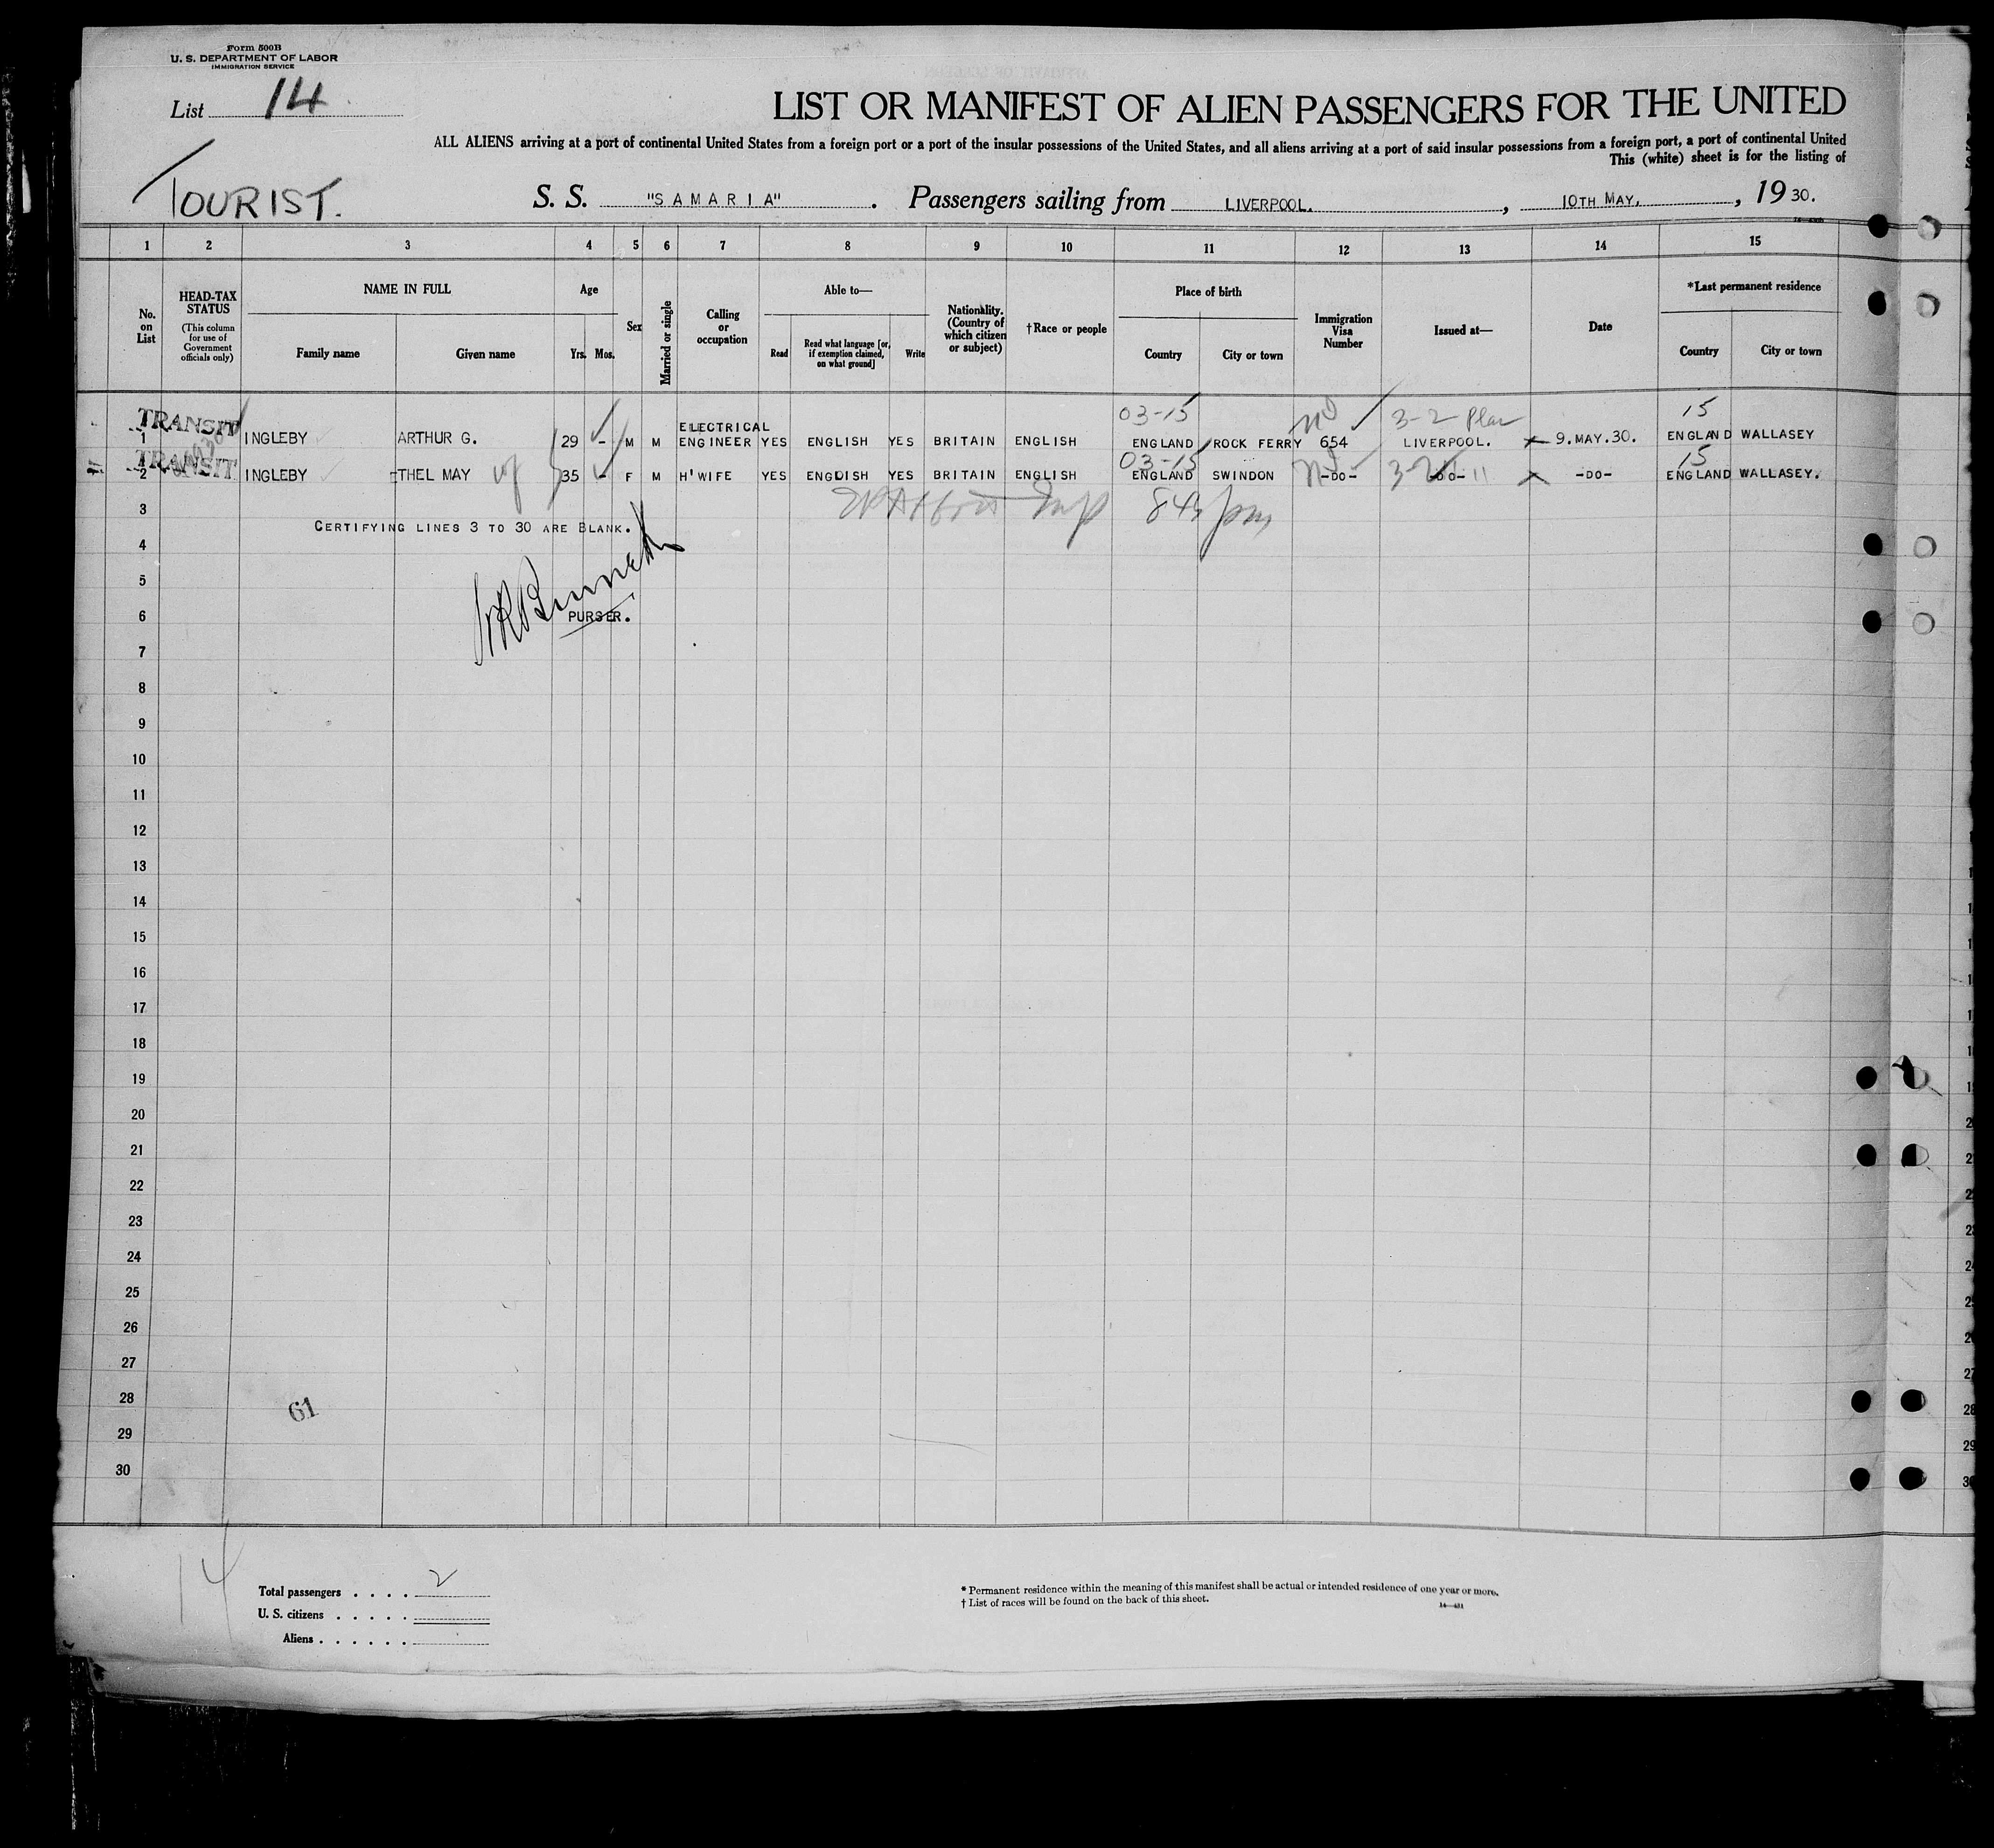 Form 500B
U. S. DEPARTMENT OF LABOR
IMMIGRATION SERVICE
List 14
LIST OR MANIFEST OF ALIEN PASSENGERS FOR THE UNITED
ALL ALIENS arriving at a port of continental United States from a foreign port or a port of the insular possessions of the United States, and all aliens arriving at a port of said insular possessions from a foreign port, a port of continental United
This (white) sheet is for the listing of
TOURIST.
S. S. "SAMARIA". Passengers sailing from LIVERPOOL., 10TH MAY, , 19 30.
1 2 3 4 5 6 7 8 9 10 11 12 13 14 15
No. on List
HEAD-TAX STATUS
(This column for use of Government officials only)
NAME IN FULL
Family name Given name
Age
Yrs. Mos.
Sex
Married or single
Calling or occupation
Able to—
Read
Read what language [or, if exemption claimed, on what ground]
Write
Nationality. (Country of which citizen or subject)
†Race or people
Place of birth
Country City or town
Immigration Visa Number
Issued at—
Date
*Last permanent residence
Country City or town
03-15 3-2 15
TRANSIT
1 INGLEBY ARTHUR G. 29 - M M ELECTRICAL ENGINEER YES ENGLISH YES BRITAIN ENGLISH ENGLAND ROCK FERRY 654 LIVERPOOL. 9.MAY.30. ENGLAND WALLASEY
03-15 15
TRANSIT
2 INGLEBY ETHEL MAY 35 - F M H'WIFE YES ENGDISH YES BRITAIN ENGLISH ENGLAND SWINDON -DO- -DO- 11 -DO- ENGLAND WALLASEY.
3
CERTIFYING LINES 3 TO 30 ARE BLANK.
4
5
6 PURSER.
7
8
9
10
11
12
13
14
15
16
17
18
19
20
21
22
23
24
25
26
27
28
61
29
30
14
Total passengers . . . . 2
U. S. citizens . . . . .
Aliens . . . . . .
* Permanent residence within the meaning of this manifest shall be actual or intended residence of one year or more.
† List of races will be found on the back of this sheet.